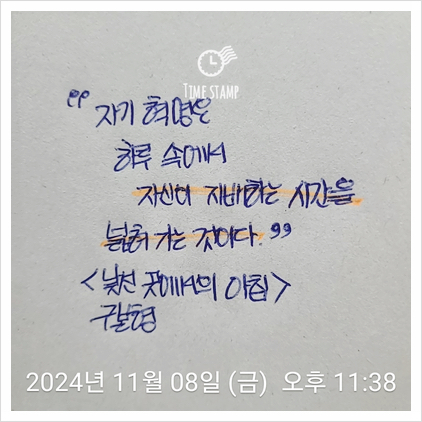 TIME STAMP
"자기 혁명은
하루 속에서
자신이 지배하는 시간을
넓혀 가는 것이다."
<낯선 곳에서의 아침>
구본형
2024년 11월 08일 (금) 오후 11:38